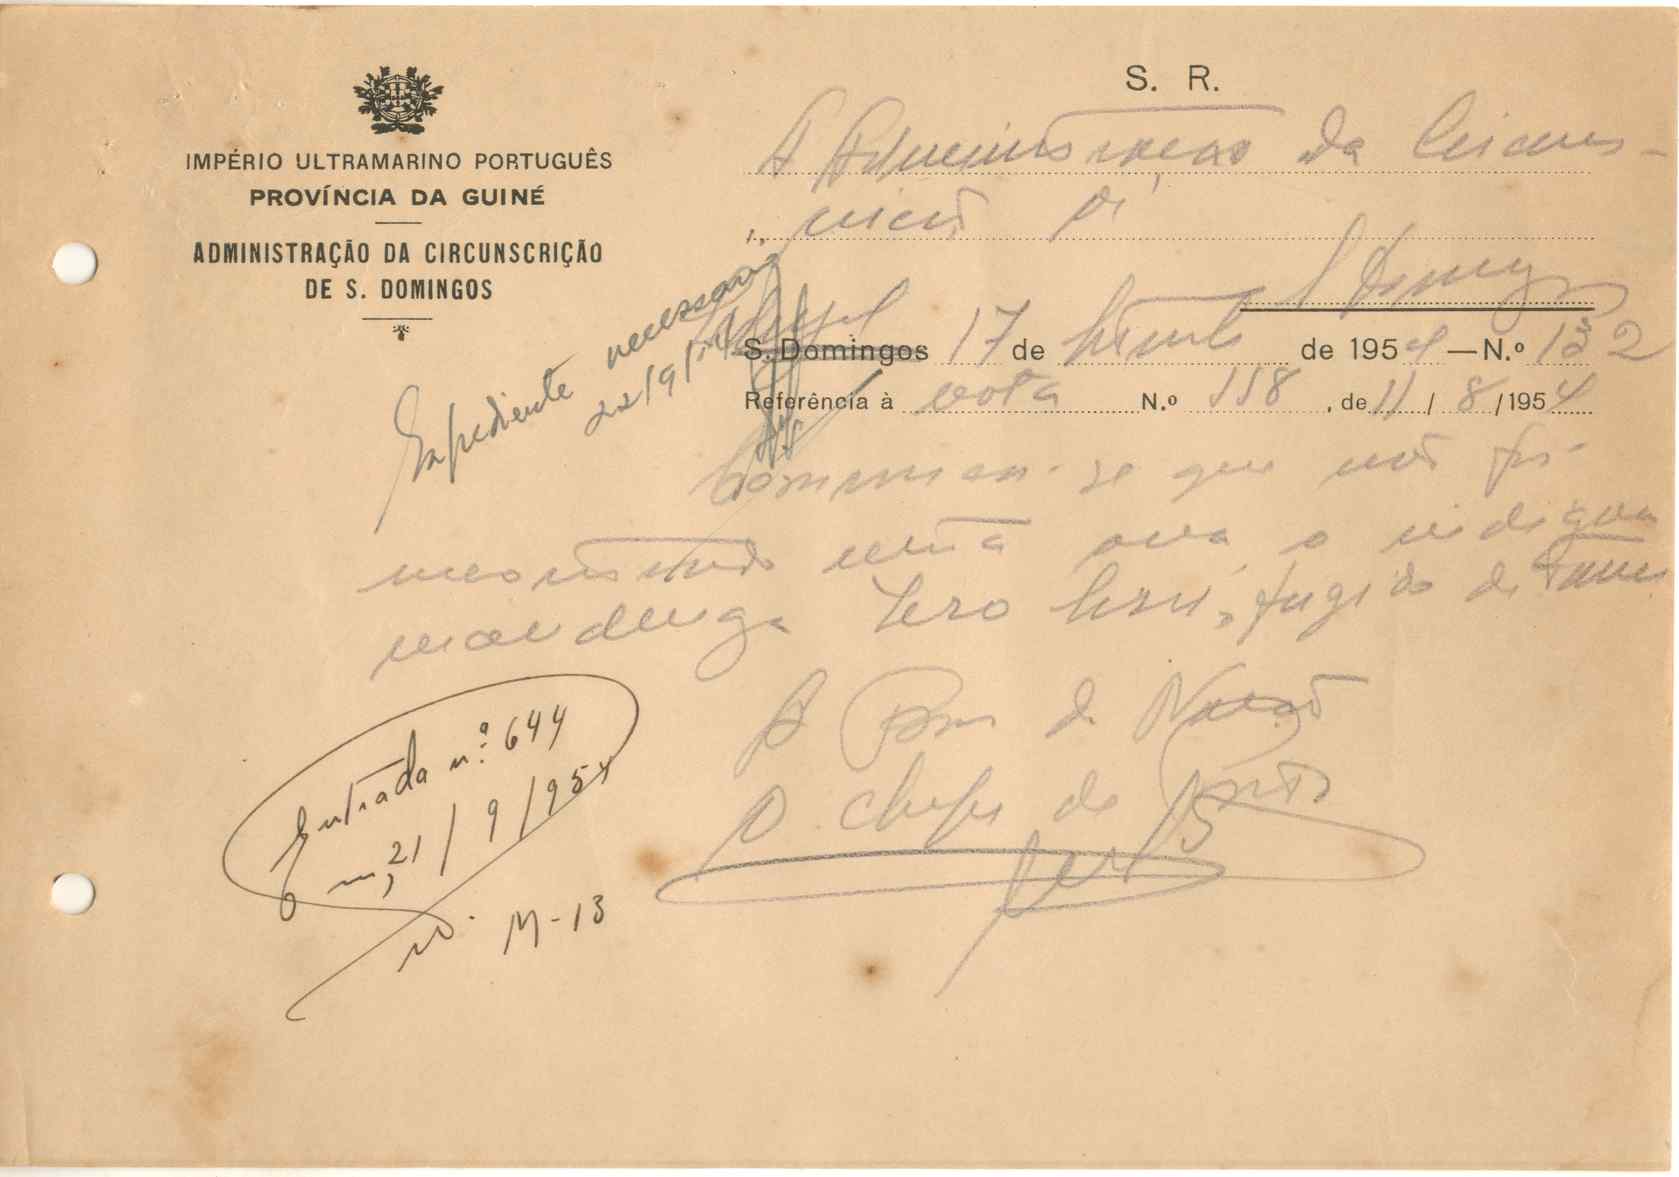 S. R.
IMPÉRIO ULTRAMARINO PORTUGUÊS
PROVÍNCIA DA GUINÉ
ADMINISTRAÇÃO DA CIRCUNSCRIÇÃO
DE S. DOMINGOS
A Administração da Circuns-
crição de
S. Domingos
S. Domingos 17 de de 1954 — N.º 132
Referência à nota N.º 118, de 11/8/1954
Expediente necessário
22/9/
Comunica-se que não foi
encontrado nesta area o indigena
mandenga fugido de
A Bem da Nação
O Chefe de Posto
Entrada n.º 644
em, 21/9/954
M-13